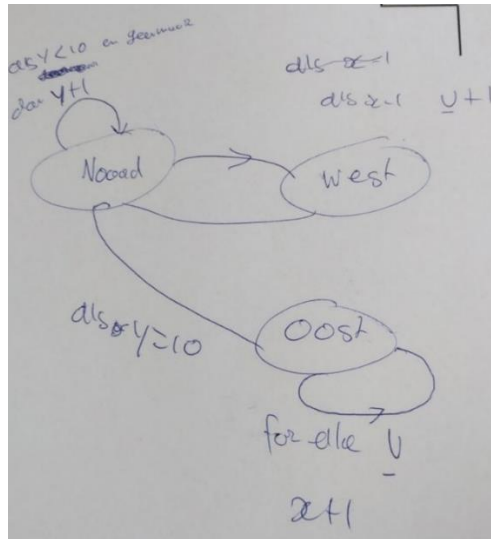 als y<10 en geen muur
dan y+1
als x-1
als x-1 U+1
Noord
West
als y=10
Oost
for elke U
x+1